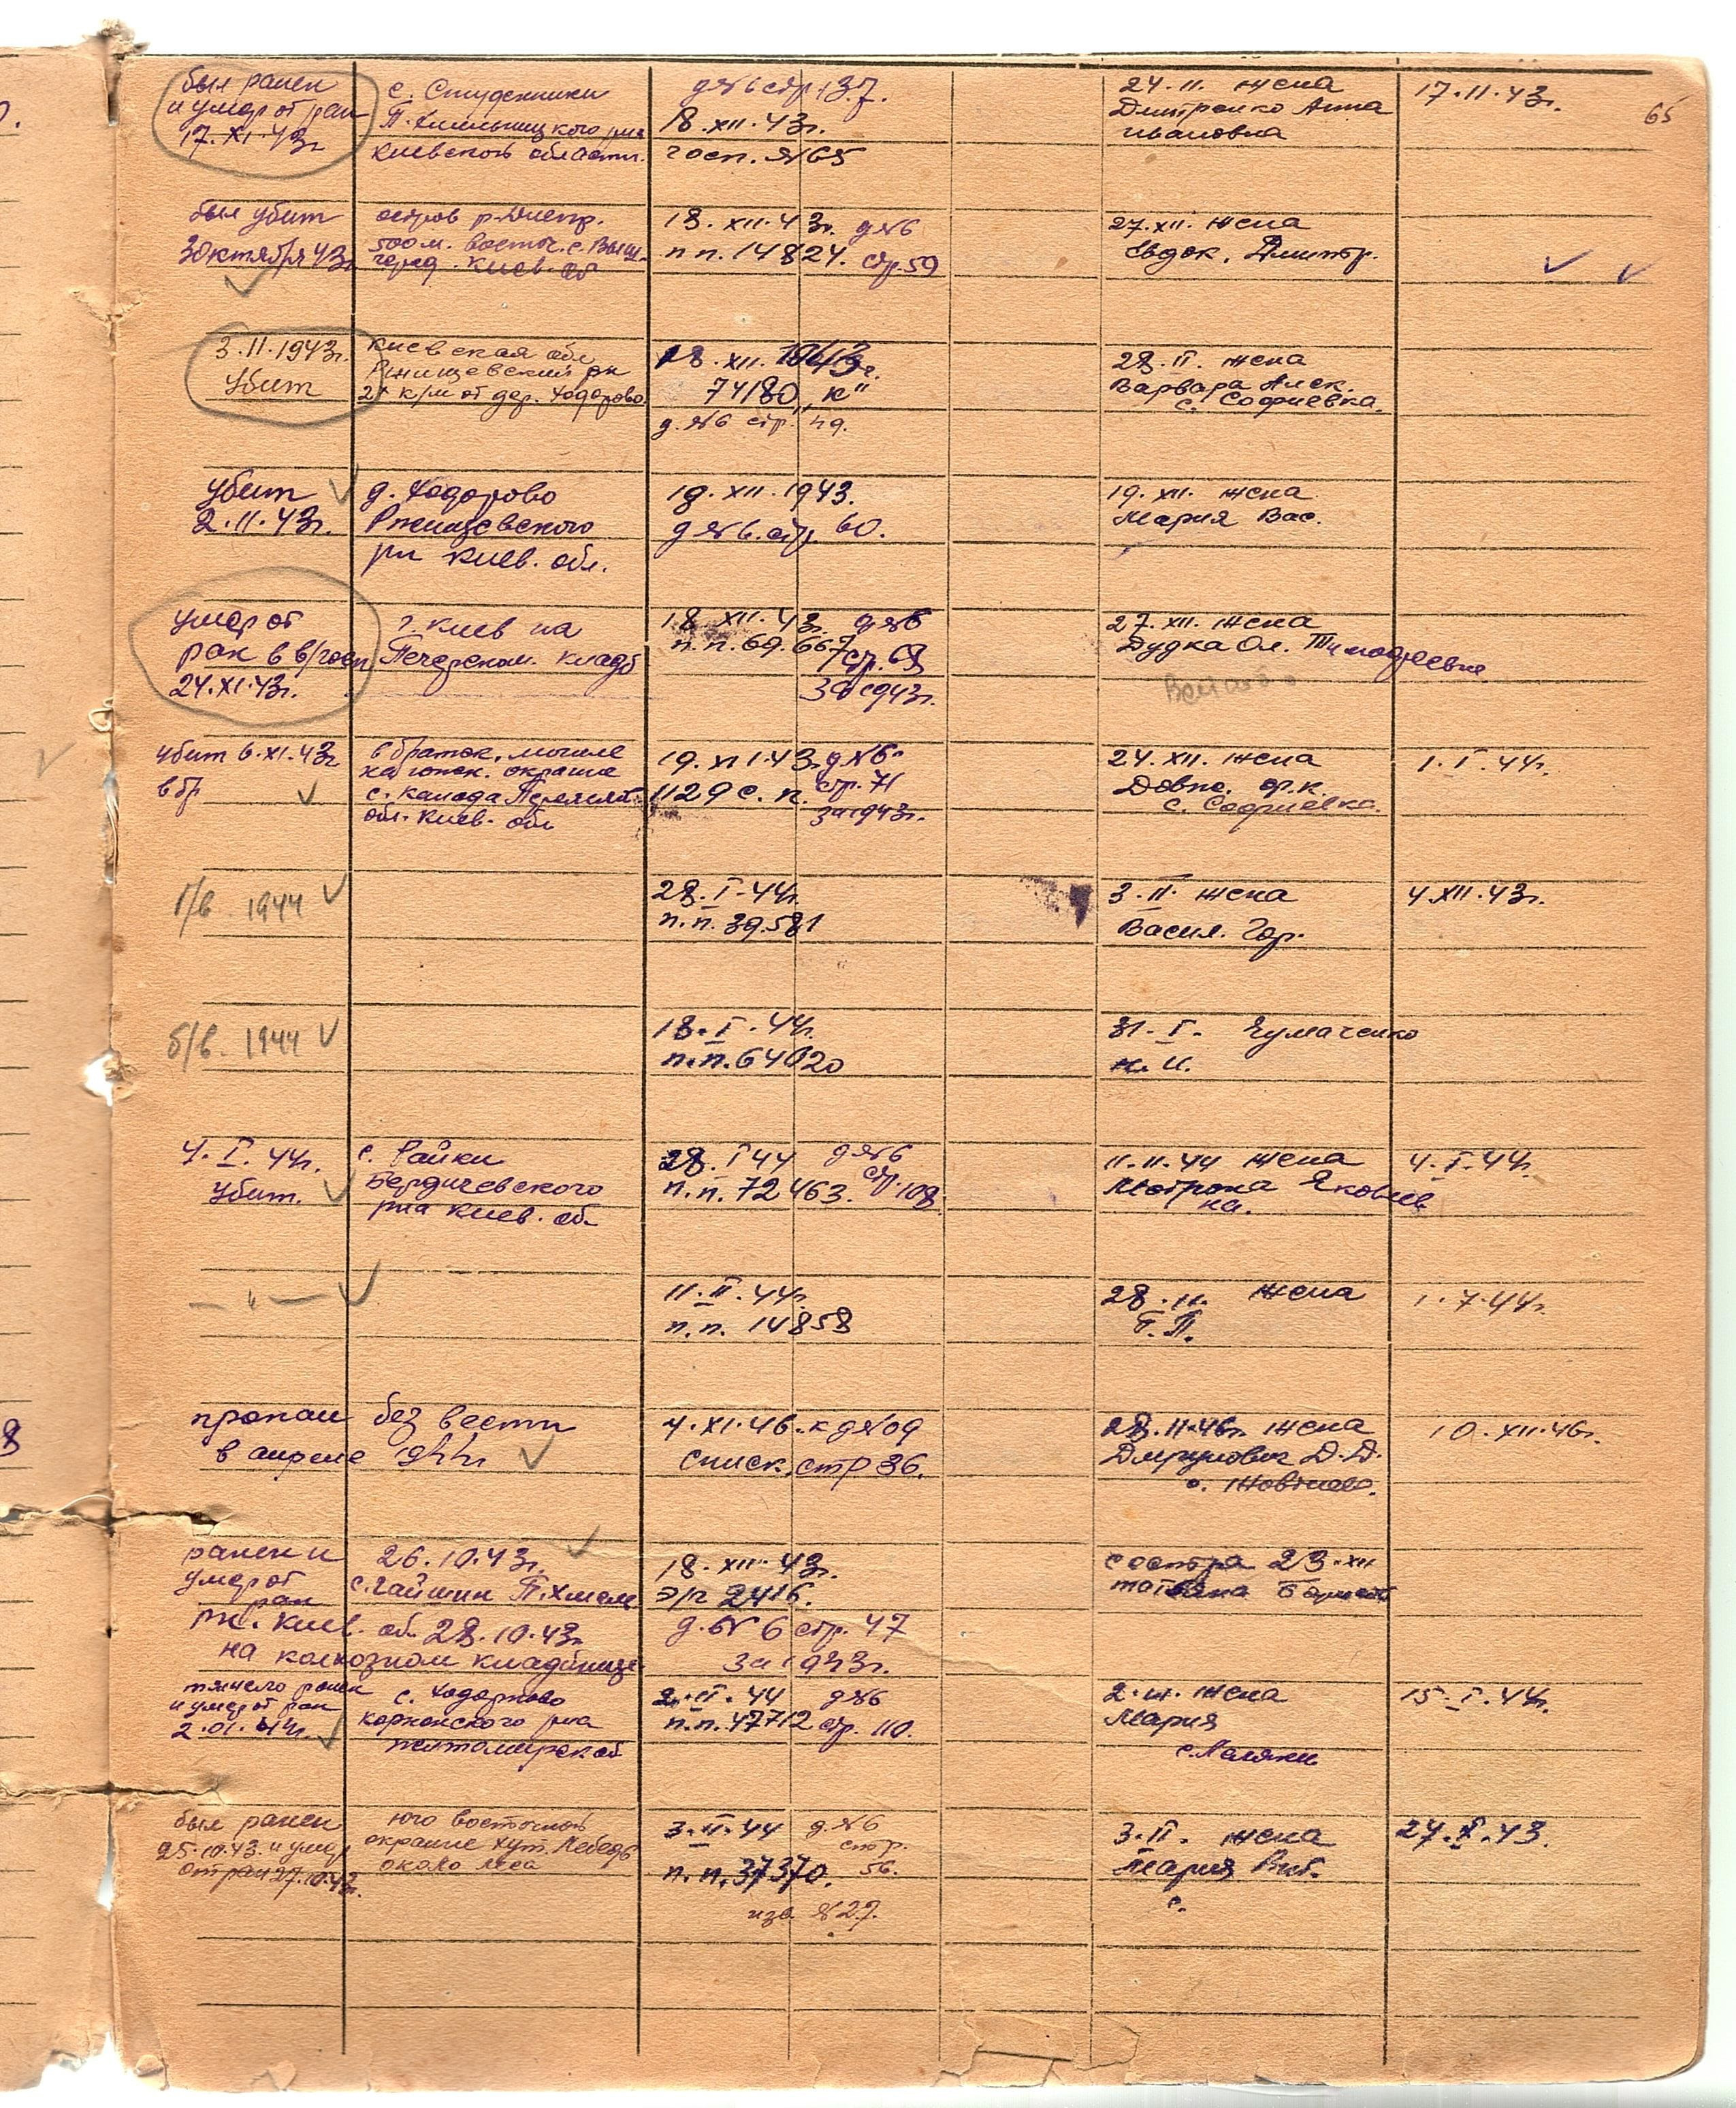 65
был ранен
и умер от ран
17.XI.43г
с. Студенники
П.Хмельницкого р-на
Киевской области.
д№6 стр 137.
18.XII.43г.
госп. №65
24.11. жена
Дмитренко Анна
Ивановна
17.11.43г.
был убит
30 октября 43г
остров р.Днепр.
500 м. восточ. с. Выш-
город. Киев. об
18.XII.43г. д№6
п п. 14824. стр.59
27.XII. жена
Евдок. Дмитр.
3.11.1943г.
Убит
Киевская обл
Ржищевский рн
2х к/м от дер. Ходорово.
18.XII.1943г.
74180 „К"
д.№6 стр. 49.
28.II. жена
Варвара Алек.
с. Софиевка.
убит
2.11.43г.
д. Ходорово
Ржищевского
рн Киев. обл.
19.XII.1943.
д№6.стр. 60.
19.XII. жена
Мария Вас.
умер от
ран в в/госп
24.XI.43г.
г. Киев на
Печерском. кладб
18.XII.43г. д№6
п.п. 69.667 стр.68
за 1943г.
27.XII. жена
Дудка Ол. Тимофеевна
убит 6.XI.43г
в бр
в браток. могиле
на южн. окраине
обл. Киев. обл
19.XI.43г д№6
1129 с.п. стр.71
за 1943г.
24.XII. жена
Довпо. ф.к.
с. Софиевка.
1.I.44г.
б/в. 1944
28.I.44г.
п.п. 39.581
3.II. жена
Васил. Гор.
4.XII.43г.
б/в. 1944
18.I.44г.
п.п.64020
31.I. Чумаченко
Н.И.
4.I.44г.
Убит.
с. Райки
Бердичевского
рна Киев. об.
28.I 44 д№6
п.п. 72463. стр.108.
11.11.44 жена
Мотрона Яковлев
на.
4.I.44г.
— " —
11.II.44г.
п.п. 14858
28.11. жена
Т.П.
1.7.44г.
пропал без вести
в апреле 1944г
4.XI.46. к д№09
списк. стр 86.
28.11.46г. жена
Д.Д.
с. Жовтнево.
10.XII.46г.
ранен и
умер от
ран
26.10.43г.
с.Гайшин П.Хмель
рн. Киев. об. 28.10.43г
на колхозном кладбище
18.XII.43г.
э/г 2416.
д.№6 стр. 47
за 1943г.
сестра 23.XII
тяжело ранен
и умер от ран
2.01.44г.
с. Ходорково
рна
житомирск об
2.II.44 д№6
п.п.47712 стр. 110.
2.III. жена
Мария
15.I.44г.
был ранен
25.10.43. и умер
от ран 27.10.43г.
юго восточной
окраине хут. Лебедв
около леса
3.II.44 д.№6
стр.
п.п.37370. 56.
изв №27.
3.II. жена
Мария
с.
27.X.43.